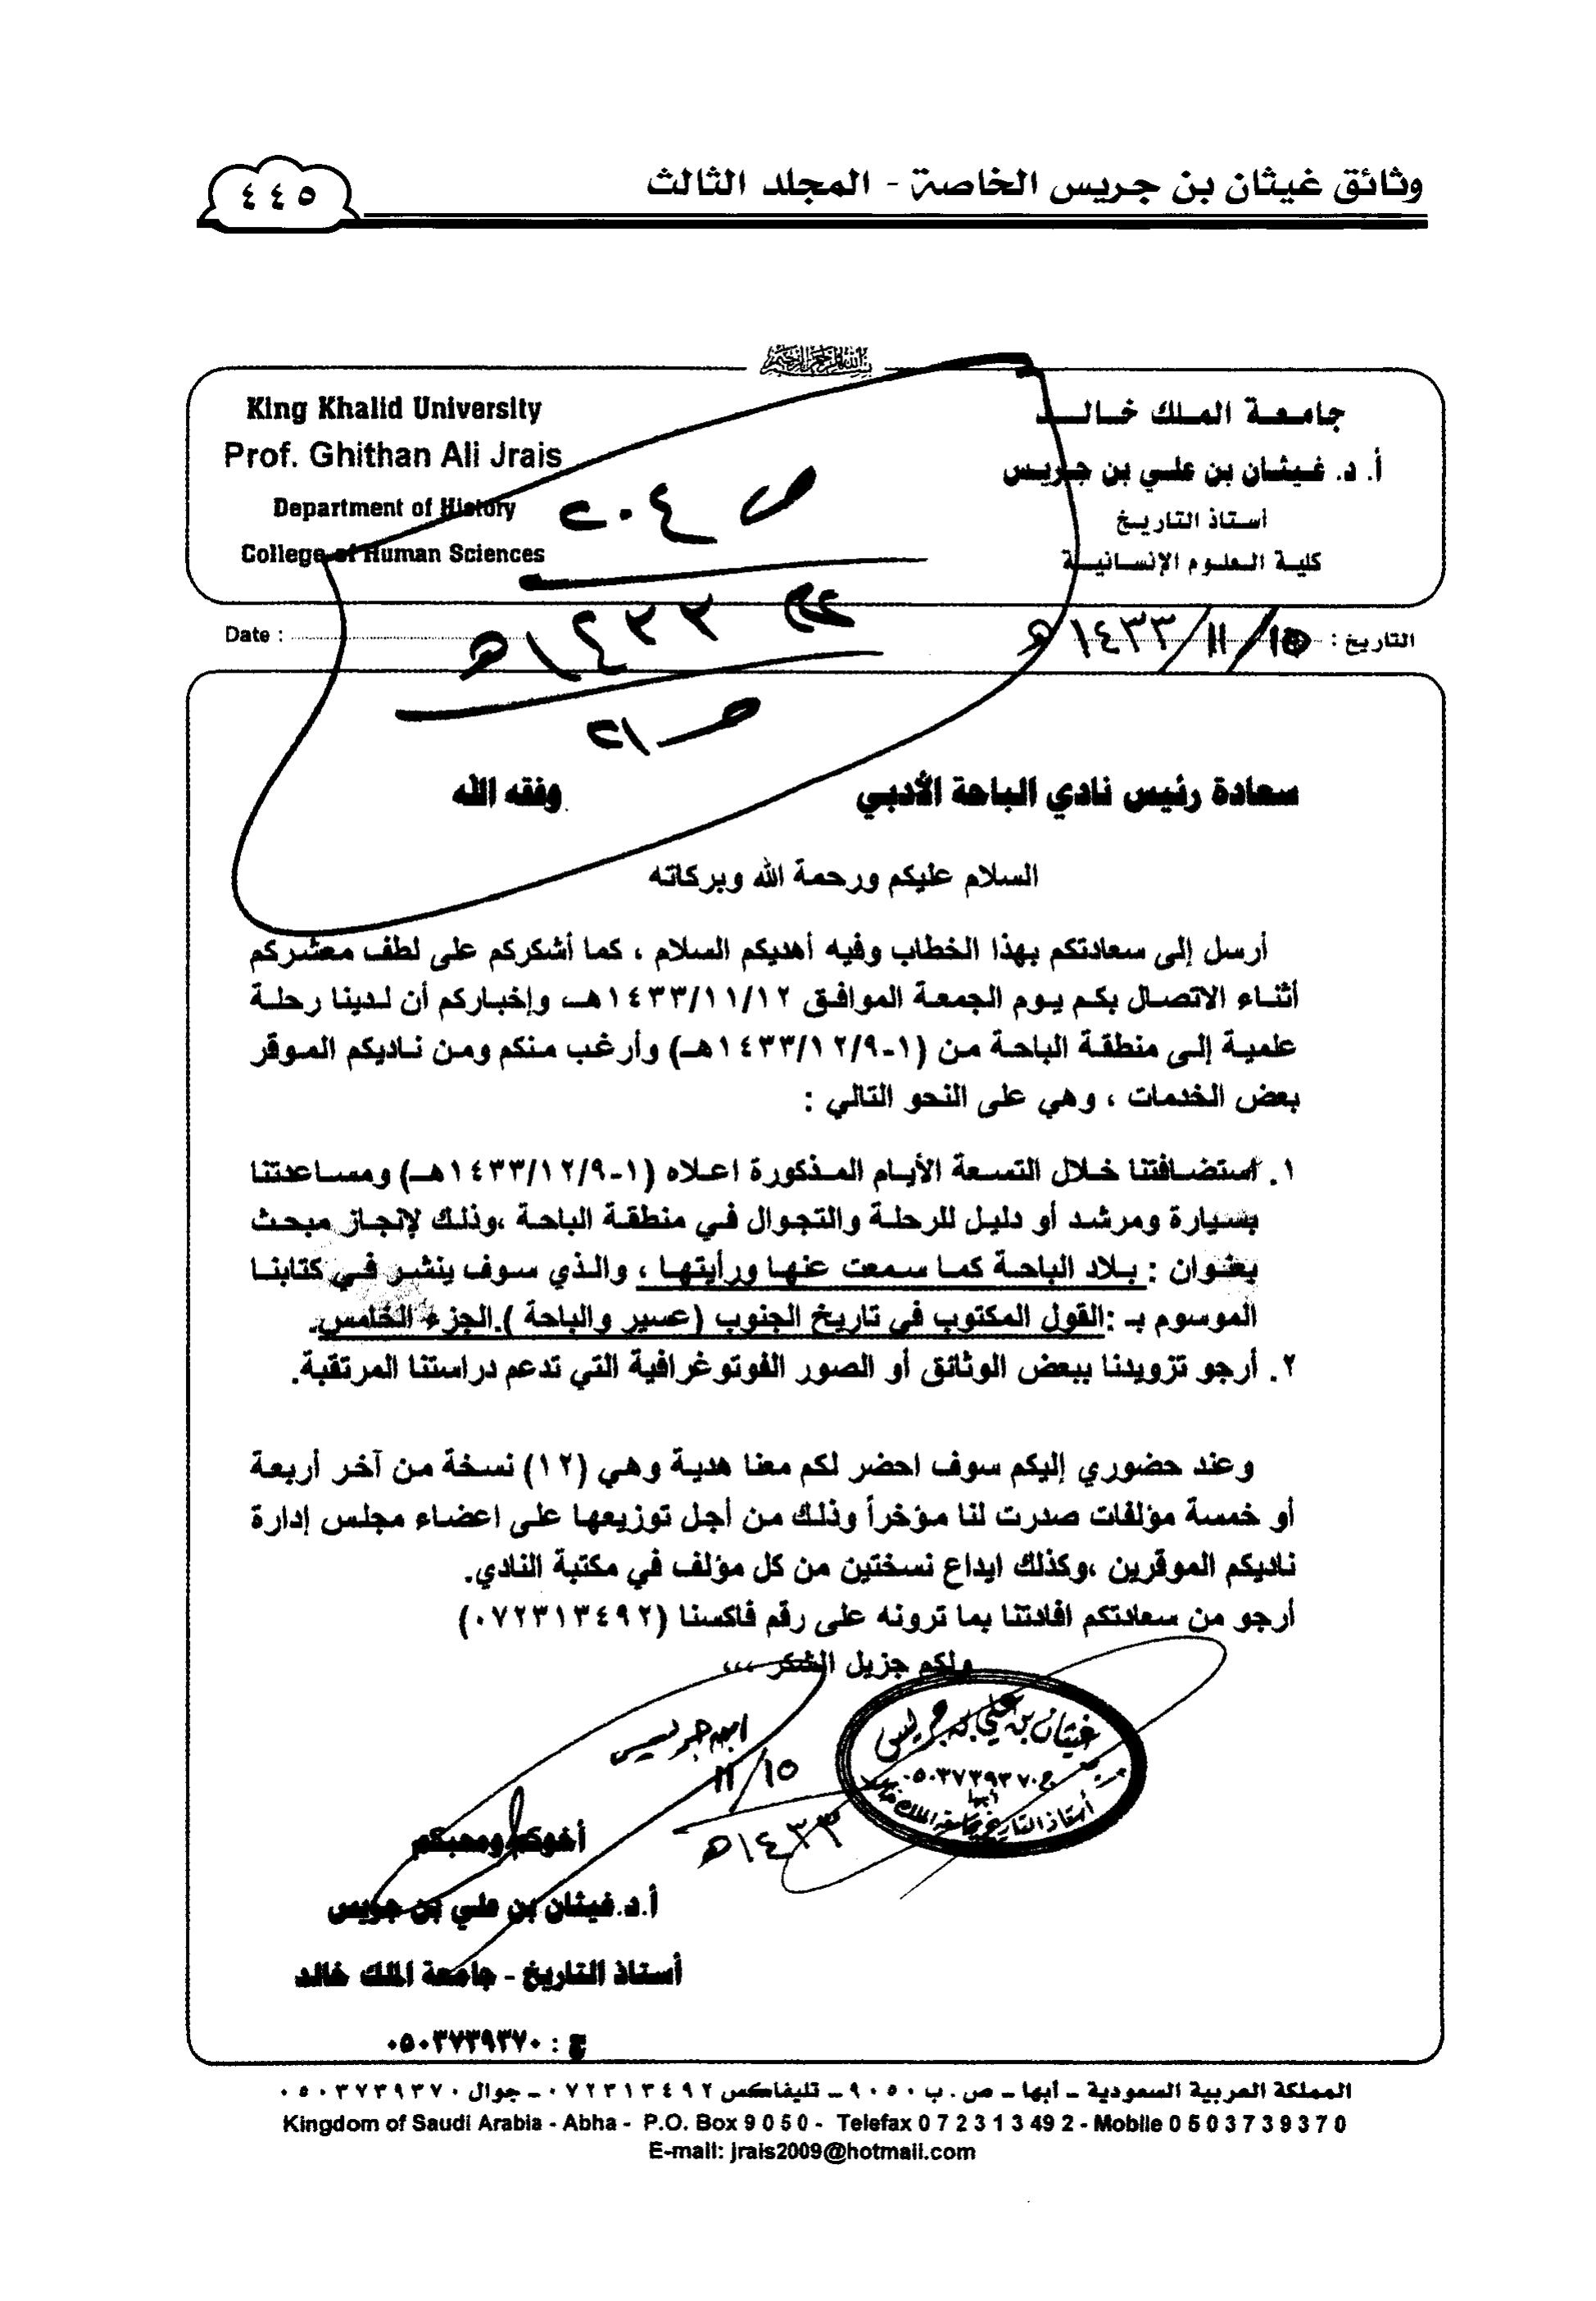 وثائق غيثان بن جريس الخاصة - المجلد الثالث
٤٤٥
بسم الله الرحمن الرحيم
جامعة الملك خالد
أ. د. غيثان بن علي بن جريس
أستاذ التاريخ
كلية العلوم الإنسانية
King Khalid University
Prof. Ghithan Ali Jrais
Department of History
College of Human Sciences
ص ٢٠٤
١٤٣٣هـ
التاريخ : ١٥/١١/١٤٣٣هـ
Date :
سعادة رئيس نادي الباحة الأدبي وفقه الله
السلام عليكم ورحمة الله وبركاته
أرسل إلى سعادتكم بهذا الخطاب وفيه أهديكم السلام ، كما أشكركم على لطف معشركم
أثناء الاتصال بكم يوم الجمعة الموافق ١٤٣٣/١١/١٢هـ، وإخباركم أن لدينا رحلة
علمية إلى منطقة الباحة من (١-١٤٣٣/١٢/٩هـ) وأرغب منكم ومن ناديكم الموقر
بعض الخدمات ، وهي على النحو التالي :
١. استضافتنا خلال التسعة الأيام المذكورة اعلاه (١-١٤٣٣/١٢/٩هـ) ومساعدتنا
بسيارة ومرشد أو دليل للرحلة والتجوال في منطقة الباحة ،وذلك لإنجاز مبحث
بعنوان : بلاد الباحة كما سمعت عنها ورأيتها ، والذي سوف ينشر في كتابنا
الموسوم بـ :القول المكتوب في تاريخ الجنوب (عسير والباحة ).الجزء الخامس.
٢. أرجو تزويدنا ببعض الوثائق أو الصور الفوتوغرافية التي تدعم دراستنا المرتقبة.
وعند حضوري إليكم سوف احضر لكم معنا هدية وهي (١٢) نسخة من آخر أربعة
أو خمسة مؤلفات صدرت لنا مؤخراً وذلك من أجل توزيعها على اعضاء مجلس إدارة
ناديكم الموقرين ،وكذلك ايداع نسختين من كل مؤلف في مكتبة النادي.
أرجو من سعادتكم افادتنا بما ترونه على رقم فاكسنا (٠٧٢٣١٣٤٩٢)
ولكم جزيل الشكر ،،،
غيثان بن علي بن جريس
ج ٠٥٠٣٧٣٩٣٧٠
أبها
أستاذ التاريخ بجامعة الملك خالد
ابن جريس
١٥/١١
١٤٣٣هـ
أخوكم ومحبكم
أ.د.غيثان بن علي بن جريس
أستاذ التاريخ - جامعة الملك خالد
ج : ٠٥٠٣٧٣٩٣٧٠
المملكة العربية السعودية - أبها - ص . ب ٩٠٥٠ - تليفاكس ٠٧٢٣١٣٤٩٢ - جوال ٠٥٠٣٧٣٩٣٧٠
Kingdom of Saudi Arabia - Abha - P.O. Box 9 0 5 0 - Telefax 0 7 2 3 1 3 49 2 - Mobile 0 5 0 3 7 3 9 3 7 0
E-mail: jrais2009@hotmail.com